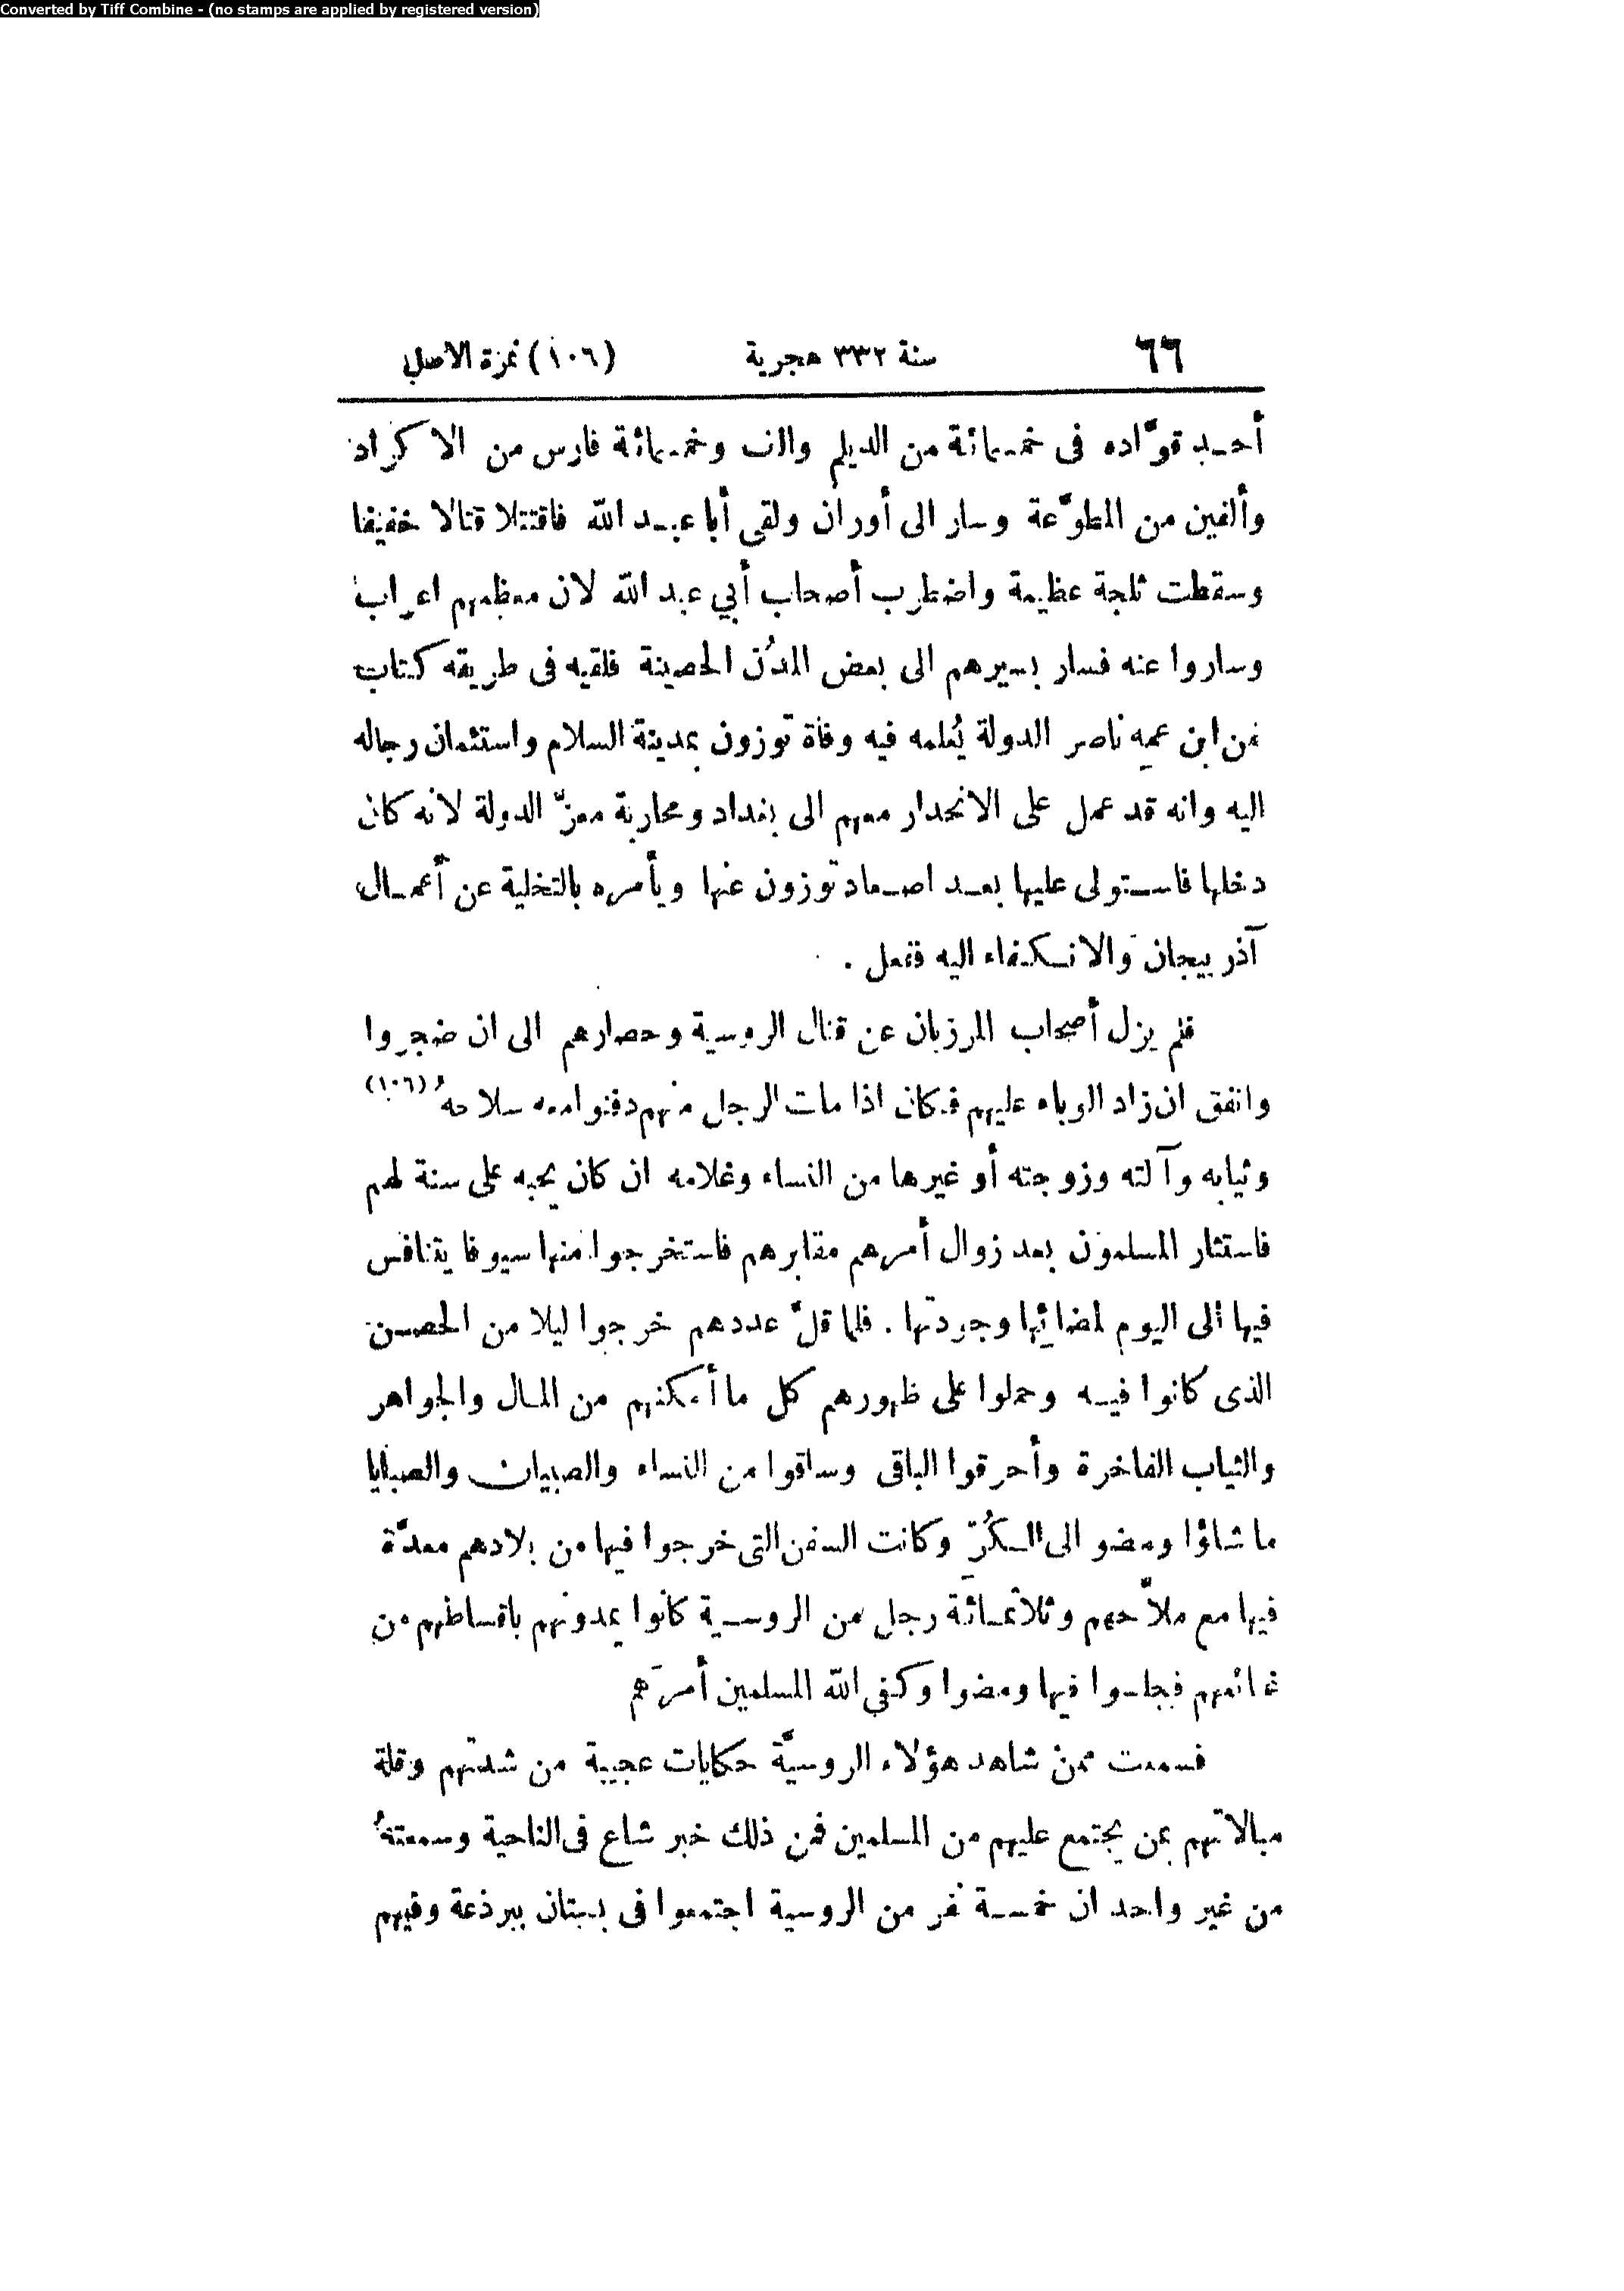 Converted by Tiff Combine - (no stamps are applied by registered version)
٦٦ سنة ٣٣٢ هجرية (١٠٦) نمرة الاصل
أحد قوّاده فى خمسمائة من الديلم والف وخمسمائة فارس من الاكراد
وألفين من المطوّعة وسار الى أوران ولقى أبا عبد الله فاقتتلا قتالا خفيفا
وسقطت ثلجة عظيمة واضطرب أصحاب أبي عبد الله لان معظمهم اعراب
وساروا عنه فسار بسيرهم الى بعض المدُن الحصينة فلقيه فى طريقه كتاب
من ابن عمه ناصر الدولة يُعلمه فيه وفاة توزون بمدينة السلام واستئمان رجاله
اليه وانه قد عمل على الانحدار معهم الى بغداد ومحاربة معزّ الدولة لانه كان
دخلها فاستولى عليها بعد اصعاد توزون عنها ويأمره بالتخلية عن أعمال
آذربيجان والانكفاء اليه ففعل .
فلم يزل أصحاب المرزبان عن قتال الروسية وحصارهم الى ان ضجروا
واتفق ان زاد الوباء عليهم فكان اذا مات الرجل منهم دفنوا معه سلاحهُ (١٠٦)
وثيابه وآلته وزوجته أو غيرها من النساء وغلامه ان كان يحبه على سنة لهم
فاستثار المسلمون بعد زوال أمرهم مقابرهم فاستخرجوا منها سيوفا يتنافس
فيها الى اليوم لمضائها وجودتها . فلما قلّ عددهم خرجوا ليلا من الحصن
الذى كانوا فيه وحملوا على ظهورهم كل ما أمكنهم من المال والجواهر
والثياب الفاخرة وأحرقوا الباقى وساقوا من النساء والصبيان والصبايا
ما شاؤا ومضو الى الكُرّ وكانت السفن التى خرجوا فيها من بلادهم معدّة
فيها مع ملاّحيهم وثلاثمائة رجل من الروسية كانوا يمدونهم باقساطهم من
غنائمهم فجلسوا فيها ومضوا وكفى الله المسلمين أمرَهم
فسمعت ممن شاهد هؤلاء الروسيّة حكايات عجيبة من شدتهم وقلة
مبالاتهم بمن يجتمع عليهم من المسلمين فمن ذلك خبر شاع فى الناحية وسمعتهُ
من غير واحد ان خمسة نفر من الروسية اجتمعوا فى بستان ببرذعة وفيهم